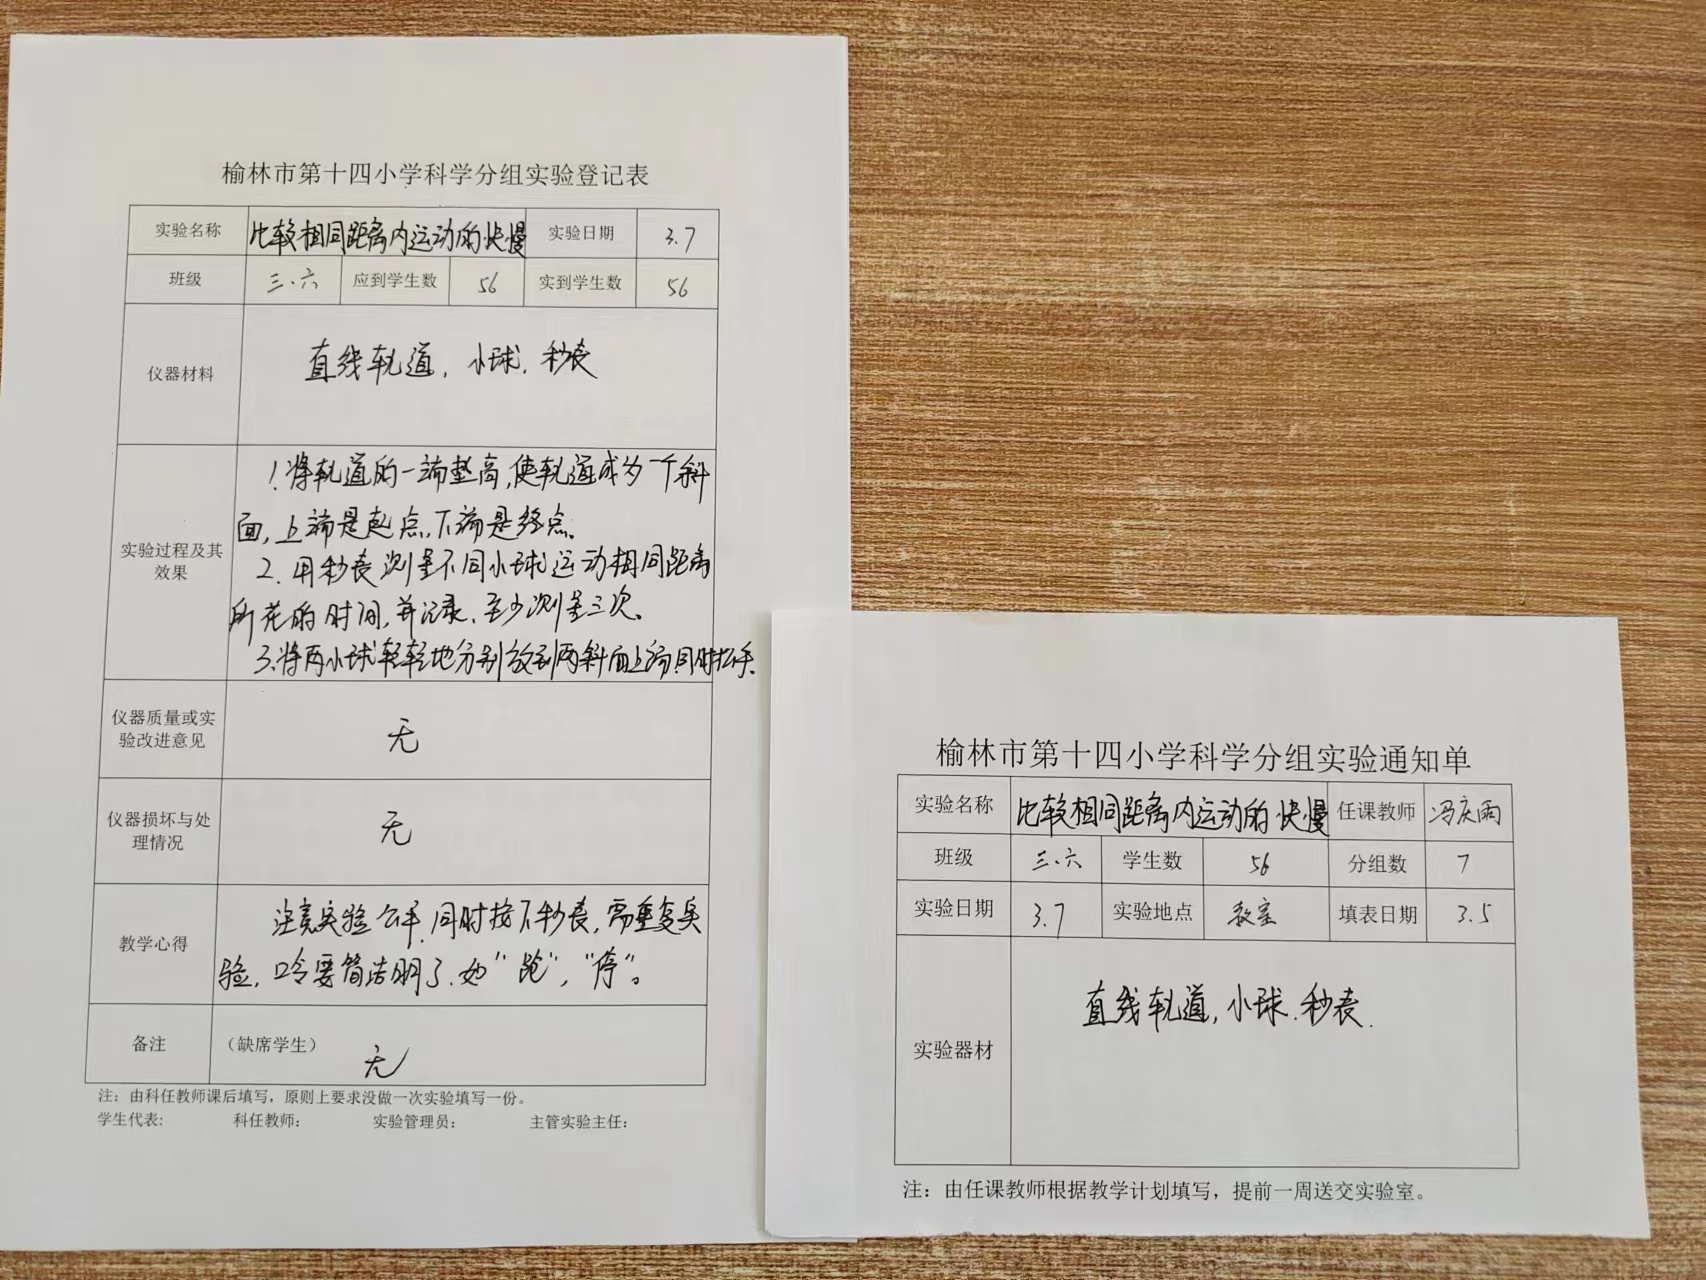 榆林市第十四小学科学分组实验登记表
实验名称 比较相同距离内运动的快慢 实验日期 3.7
班级 三.六 应到学生数 56 实到学生数 56
仪器材料 直线轨道，小球，秒表
1.将轨道的一端垫高，使轨道成为一个斜
面，上端是起点，下端是终点。
实验过程及其
效果
2.用秒表测量不同小球运动相同距离
所花的时间，并记录，至少测量三次。
3.将两小球轻轻地分别放到两斜面上端同时松手
仪器质量或实
验改进意见
无
仪器损坏与处
理情况
无
教学心得
注意实验公平，同时按下秒表，需重复实
验，口令要简洁明了，如“跑”，“停”。
备注 （缺席学生） 无
注：由科任教师课后填写，原则上要求没做一次实验填写一份。
学生代表： 科任教师： 实验管理员： 主管实验主任：
榆林市第十四小学科学分组实验通知单
实验名称 比较相同距离内运动的快慢 任课教师 冯庆雨
班级 三.六 学生数 56 分组数 7
实验日期 3.7 实验地点 教室 填表日期 3.5
实验器材 直线轨道，小球.秒表.
注：由任课教师根据教学计划填写，提前一周送交实验室。